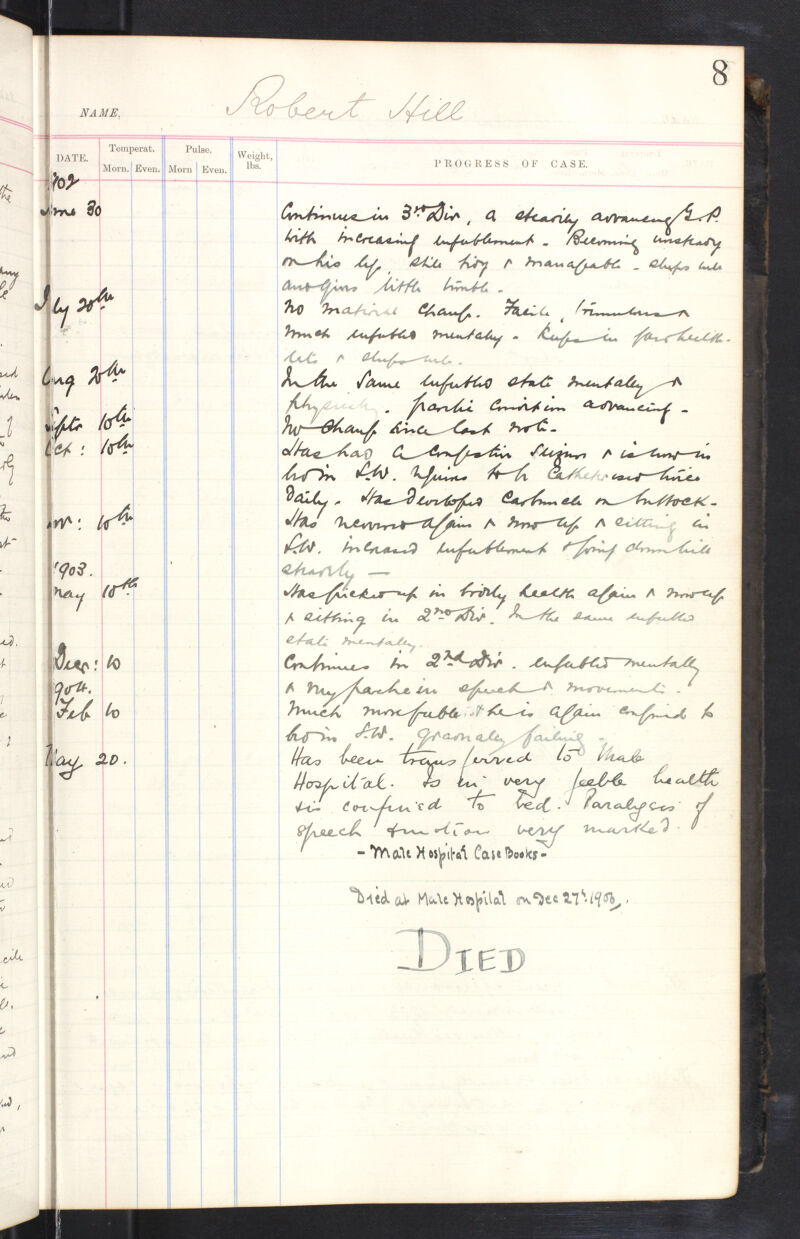 8
NAME, Robert Hill
DATE. Temperat. Morn. Even. Pulse. Morn Even. Weight, lbs. PROGRESS OF CASE.
1902
June 30 Continues in 3rd Div, a steadily advancing G.P.
with increasing enfeeblement - Becoming unsteady
on his legs, still tidy & manageable - sleeps well
and gives little trouble -
July 20th No material change. Facile, tremulous &
much enfeebled mentally - Keeps in fair health -
eats & sleeps well.
Aug 20th In the same enfeebled state mentally &
physically. paretic condition advancing -
Septr 10th No change since last note -
Oct: 10th Has had a congestive seizure & is now in
bed in S.W. requires to be catheterised twice
Daily - Has developed carbuncle on buttock -
Nov: 10th Has recovered again & now up & sitting in
S.W. increased enfeeblement & going down hill
steadily -
1903.
May 10th Has picked up in bodily health again & now up
& sitting in 2nd Div. In the same enfeebled
state mentally.
Decr: 10 Continues in 2nd Div. enfeebled mentally
1904. & very paretic in speech & movements.
Feb 10 Much more feeble & he is again confined to
bed in S.W. gradually failing -
May 20. Has been transferred to Male
Hospital. Is in very feeble health
& is confined to bed. Paralysis of
speech & motion very marked.
- Male Hospital Case Books -
Died at Male Hospital on Dec 27th
DIED